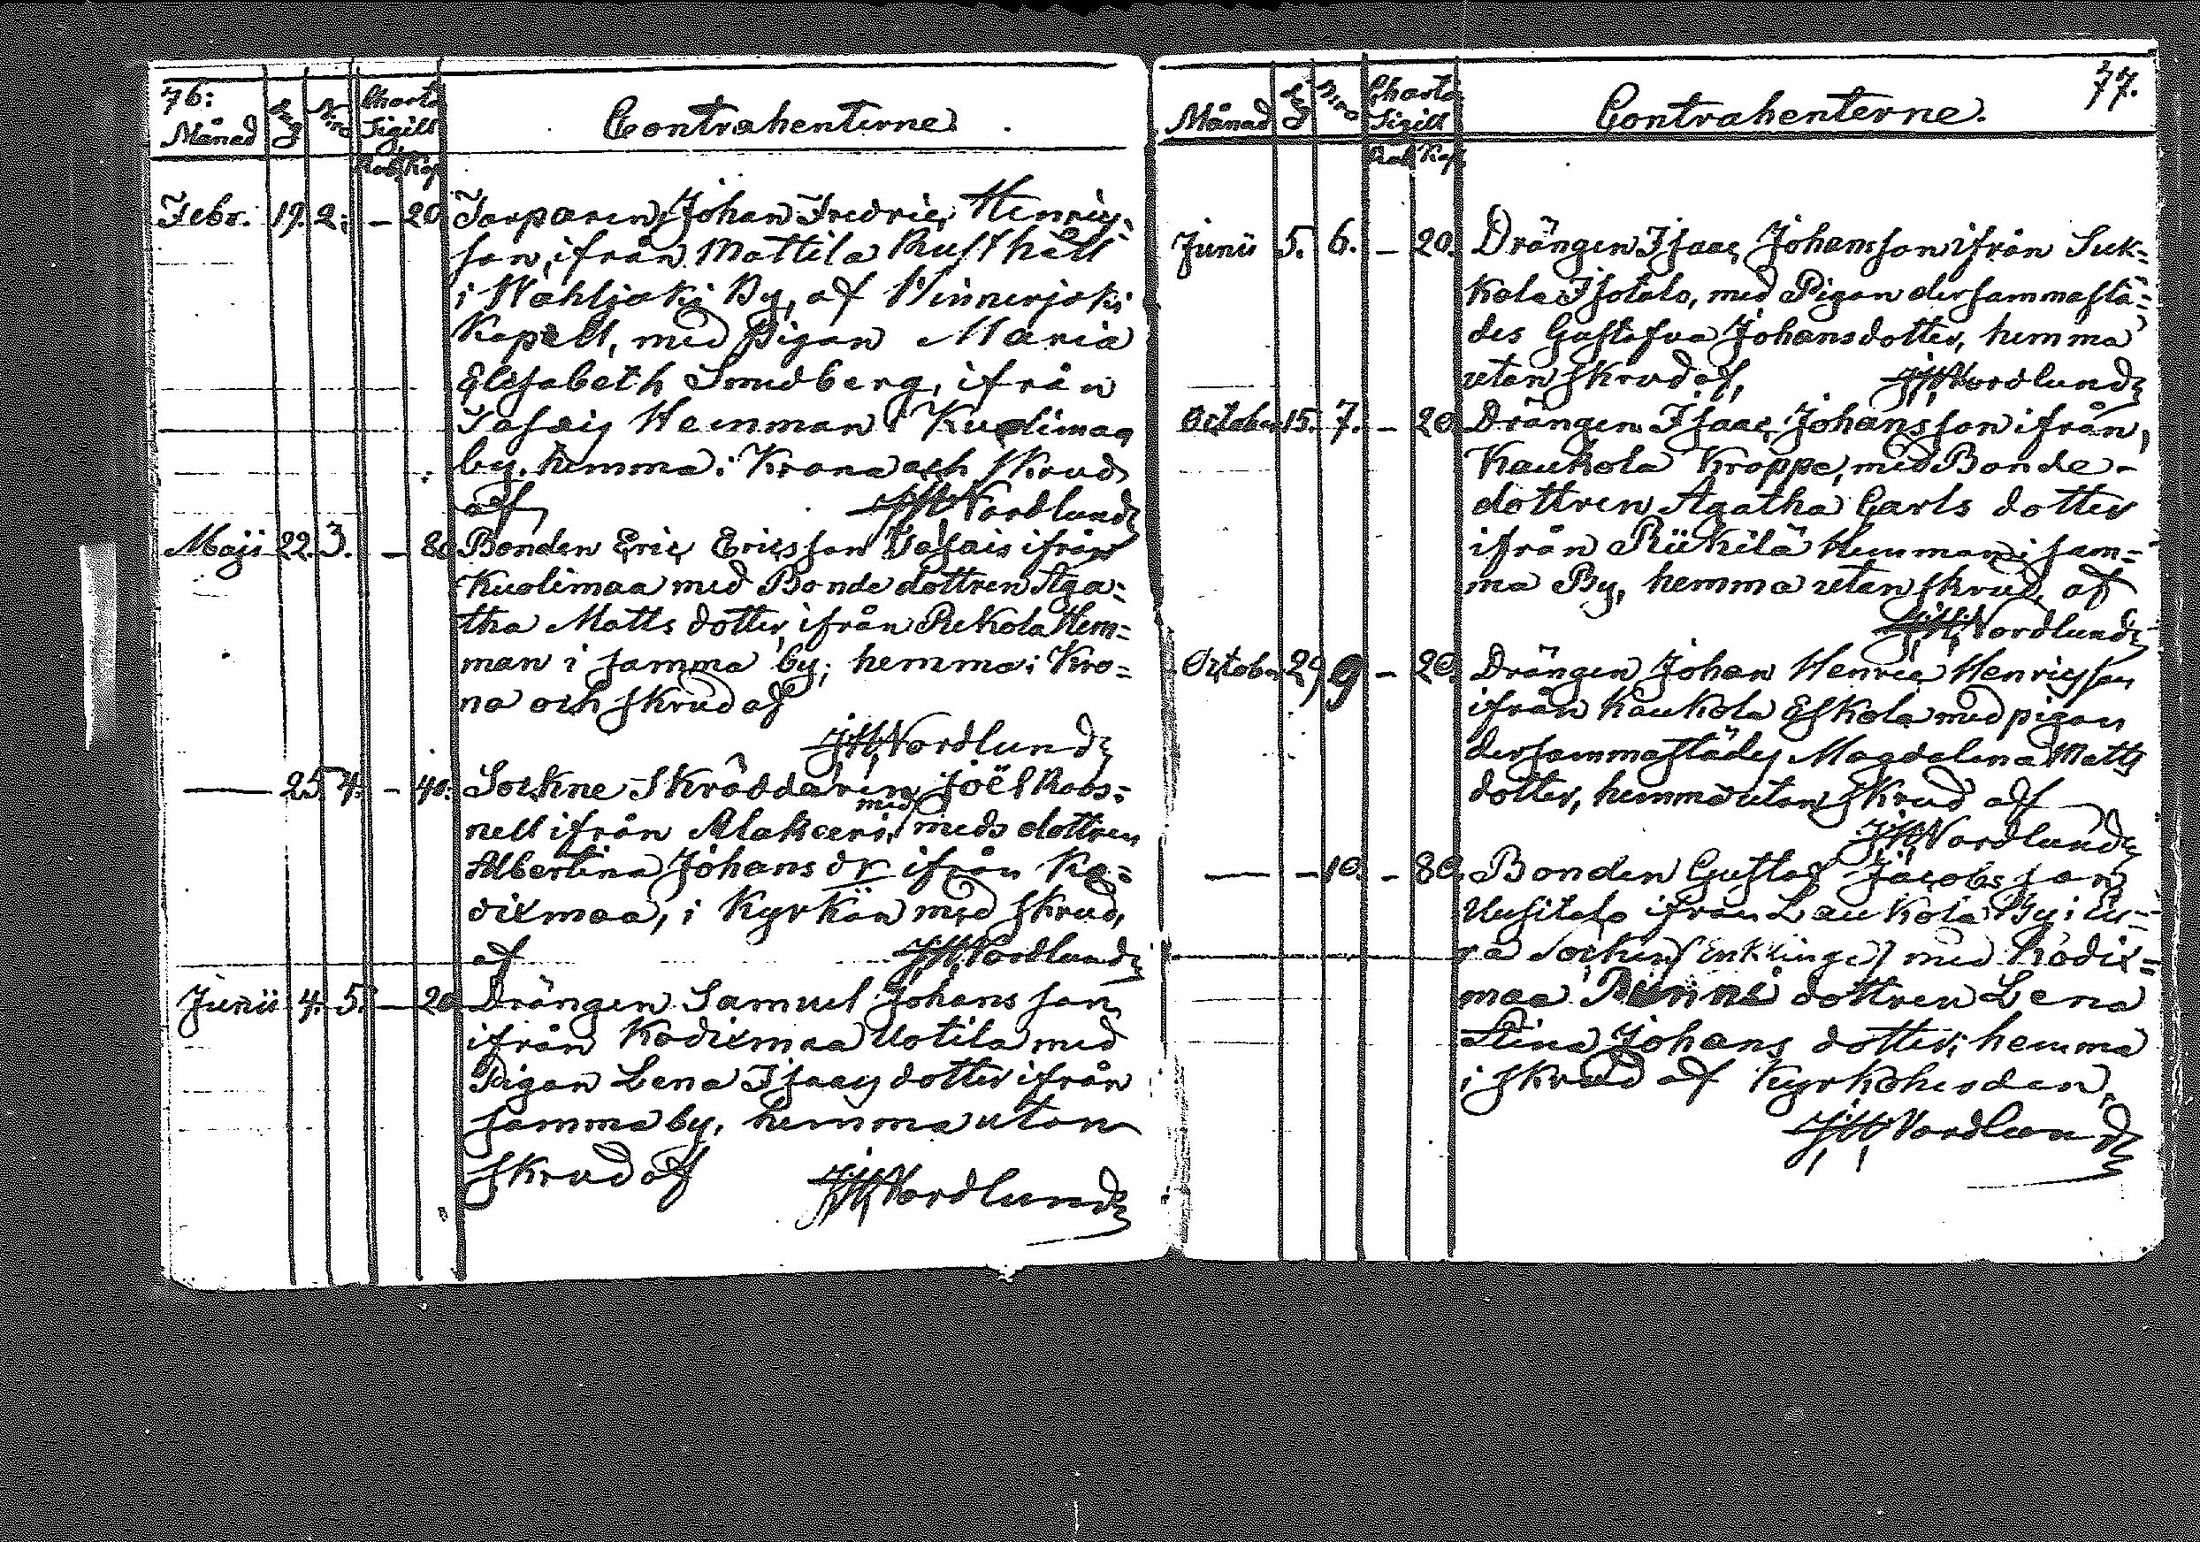 76:
Månad Dag N:ro Charta Sigill Contrahenterne
Rub. Kop.
Febr. 19. 2. – 20. Torparen, Johan Fredric, Henrics-
son, ifrån Mattila Rusthåll
i Wahljoki By, af Hinnerjoki
Kapell, med Pigan Maria
Elisabeth Smedberg, ifrån
Hemman i Kuolimaa
by. hemma i Krona och Skrud
af JH Nordlund
Maji 22. 3. – 80 Bonden Eric Ericsson ifrån
Kuolimaa med Bonde dottren Aga=
tha Matts dotter, ifrån Pekola Hem=
man i samma by; hemma i Kro=
na och skrud af
JH Nordlund
— 25 4. – 40. Sockne Skräddaren Joël Roos=
nell ifrån med dottren
Albertina Johans dr ifrån Ko=
dixmaa, i Kyrkan med skrud,
af JH Nordlund
Junii 4. 5. – 20 Drängen Samuel Johansson
ifrån Kodixmaa Uotila med
Pigan Lena Isaacs dotter ifrån
samma by, hemma utan
skrud af JH Nordlund
77.
Månad Dag N:ro Charta Sigill Contrahenterne.
Rub. Kop.
Junii 5. 6. – 20. Drängen Isaac Johansson ifrån Suk=
kola Isotalo, med Pigan dersammastä=
des Gustafva Johansdotter, hemma
utan skrud af, JH Nordlund
October 15. 7. – 20 Drängen Isaac Johansson ifrån,
Kaukola Kroppe, med Bonde-
dottren Agatha Carls dotter
ifrån Riikilä Hemman i sam=
ma By, hemma utan skrud, af
JH Nordlund
October 29 9 – 20. Drängen Johan Henric Henricsson
ifrån Kaukola Eskola med pigan
dersammastädes Magdalena Matts
dotter, hemma utan skrud af
JH Nordlund
— – 10. – 80. Bonden Gustaf Jacobsson
Uusitalo ifrån Laukola By i Eu-
ra Socken (Enklinge) med Kodix=
maa dottren Lena
Stina Johans dotter; hemma
i skrud af Kyrkoherden,
JH Nordlund